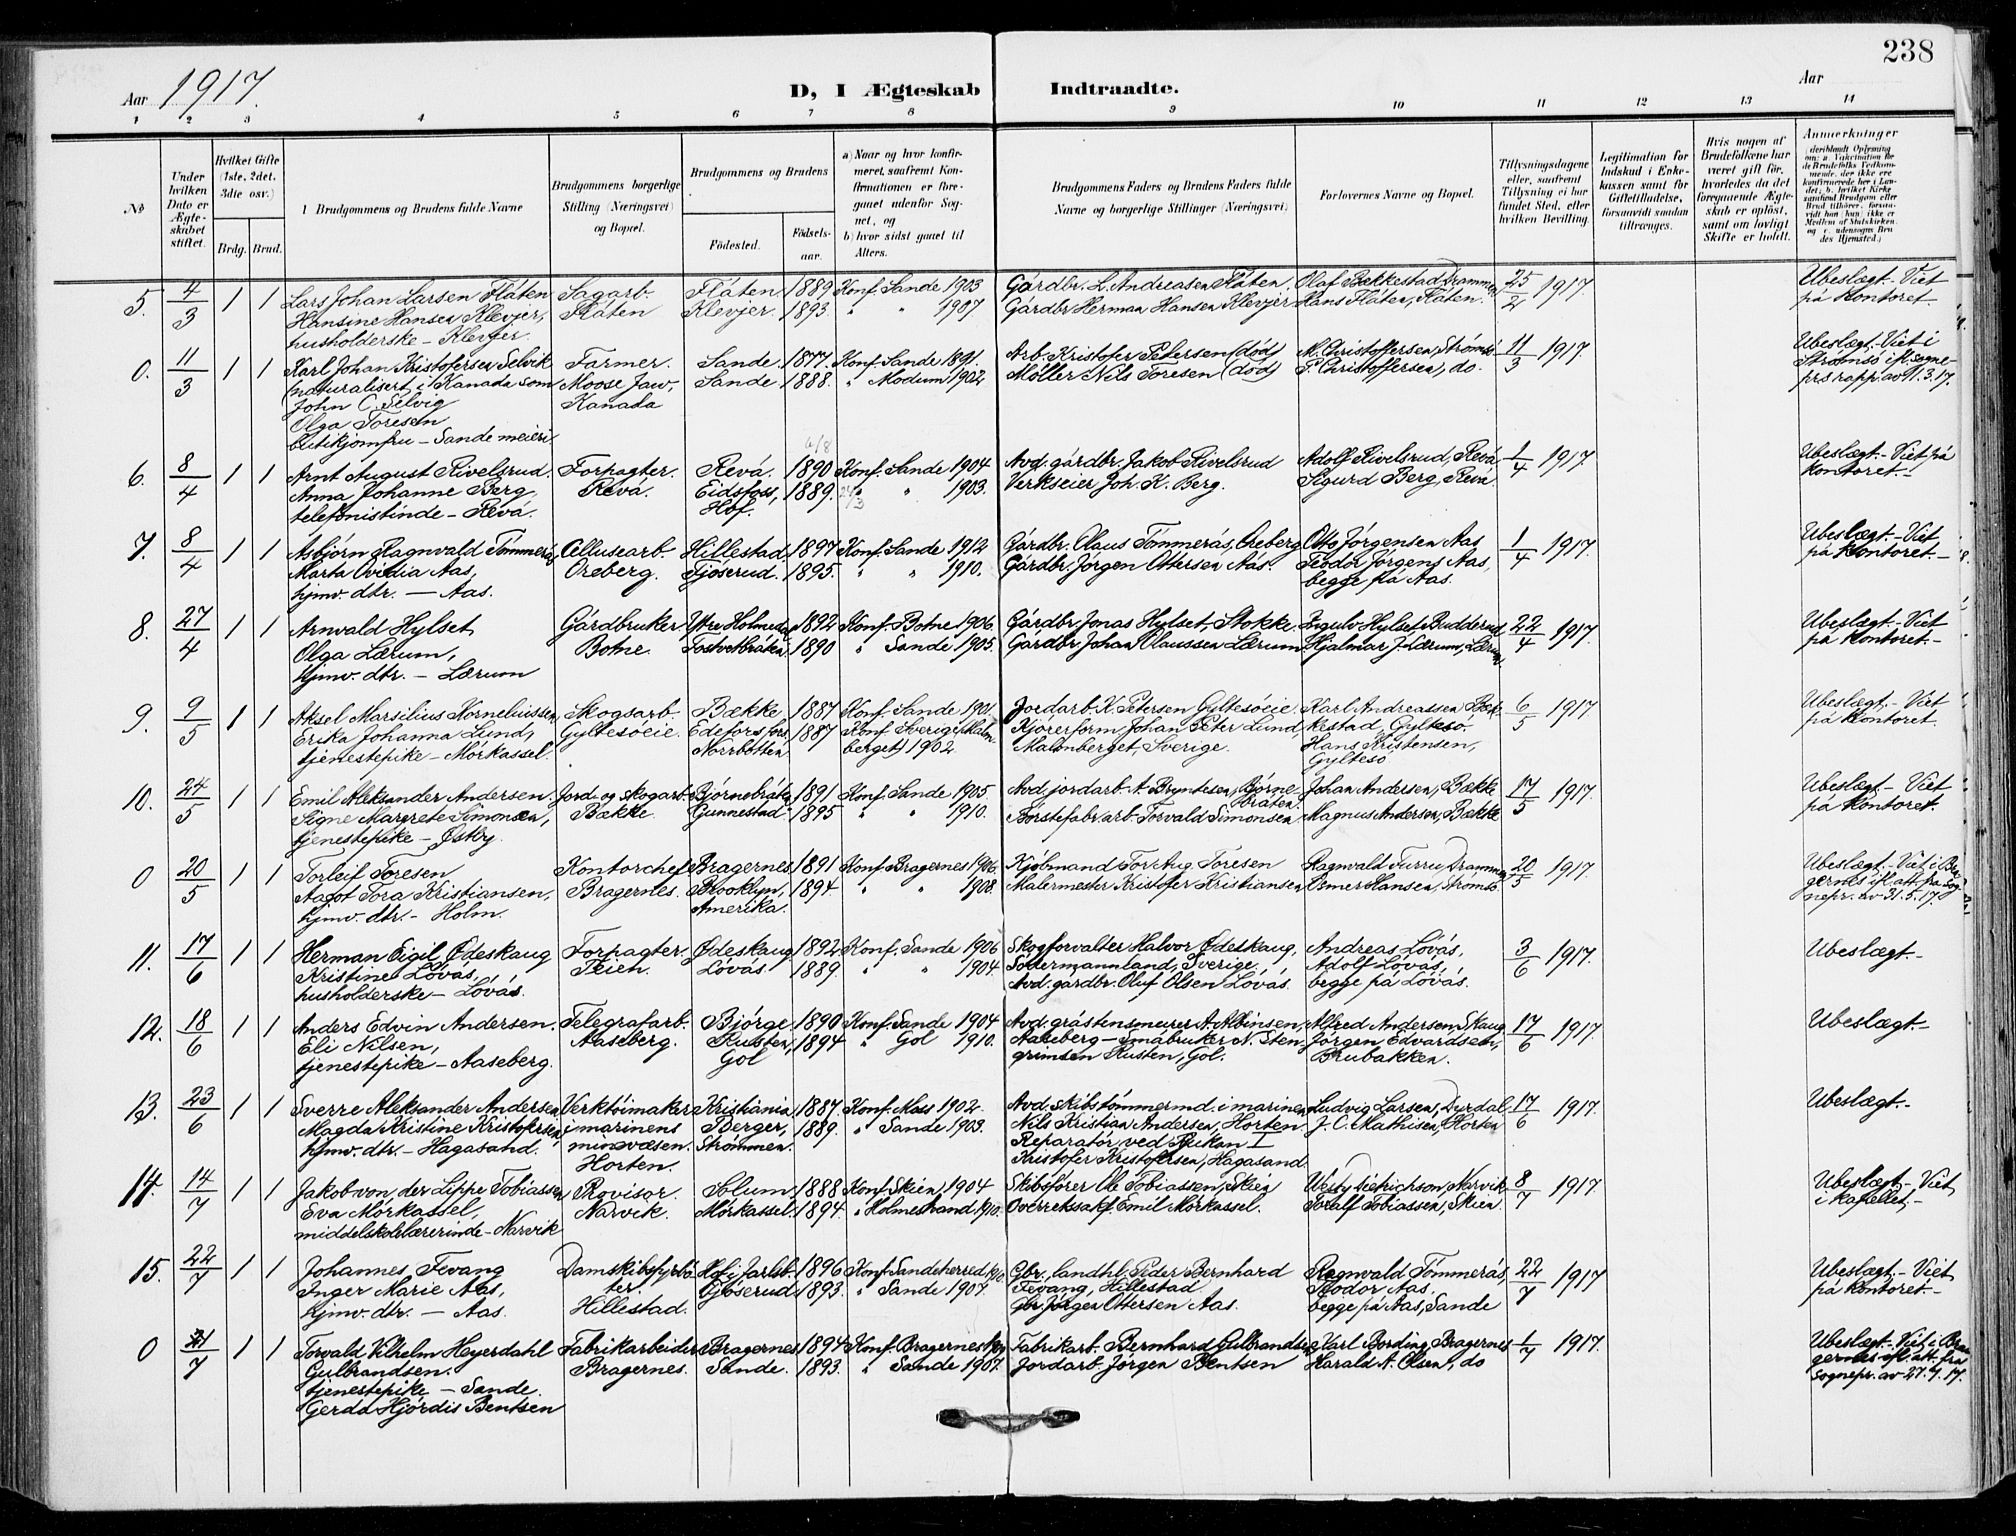 238
Aar 1917.
D, I Ægteskab Indtraadte.
Aar
1 2 3 4 5 6 7 8 9 10 11 12 13 14
No
Under hvilken Dato er Ægteskabet stiftet.
Hvilket Gifte (1ste, 2det, 3die osv.)
Brdg. Brud.
1 Brudgommens og Brudens fulde Navne
Brudgommens borgerlige Stilling (Næringsvei) og Bopæl.
Brudgommens og Brudens
Fødested.
Fødselsaar.
a) Naar og hvor konfirmeret, saafremt Konfirmationen er foregaaet udenfor Sognet, og
b) hvor sidst gaaet til Alters.
Brudgommens Faders og Brudens Faders fulde Navne og borgerlige Stillinger (Næringsvei)
Forlovernes Navne og Bopæl.
Tillysningsdagene eller, saafremt Tillysning ei har fundet Sted, efter hvilken Bevilling.
Legitimation for Indskud i Enkekassen samt for Giftetilladelse, forsaavidt saadan tiltrænges.
Hvis nogen af Brudefolkene har været gift før, hvorledes da det foregaaende Ægteskab er opløst, samt om lovligt Skifte er holdt.
Anmerkninger
(deriblandt Oplysning om: a. Vakcination for de Brudefolks Vedkommende, der ikke ere konfirmerede her i Landet; b. hvilket Kirkesamfund Brudgom eller Brud tilhører, forsaavidt han (hun) ikke er Medlem af Statskirken, og c. udensogns Brudes Hjemsted.)
5. 4/3 1 1 Lars Johan Larsen Flåten Sagarb. Flåten 1889 Konf. Sande 1903 Gårdbr. L. Andreasen Flåten, Olaf Bækkestad, Drammen 25/2 1917. Ubeslægt. - Viet
Hansine Hansen Klevjer, Flåten Klevjer. 1893. " " 1907 Gårdbr Herman Hansen Klevjer Hans Flåten, Flåten. på kontoret -
husholderske - Klevjer.
0. 11/3 1 1 Karl Johan Kristofersen Selvik Farmer. Sande. 1877. Konf. Sande 1891. Arb. Kristofer Petersen (død) M. Christoffersen, Strømsø 11/3 1917. Ubeslægt. - Viet i
(naturalisert i Kanada som Moose Jaw, Sande 1888. " Modum 1902 Møller Nils Toresen (død) P. Christoffersen, do. Strømsø ifl. sogne-
John C. Selvig Kanada prs rapp. av 11.3.17.
Olga Toresen
butikjomfru - Sande meieri
6. 8/4 1 1 Arnt August Rivelsrud. Forpagter. Revå. 1890 Konf. Sande 1904 Avd. gårdbr. Jakob Rivelsrud Adolf Rivelsrud, Revå 1/4 1917. Ubeslægt. - Viet på
Anna Johanne Berg, Revå. Eidsfoss, 1889. " " 1903. Verkseier Joh. K. Berg. Sigurd Berg, Revå. kontoret. -
telefonistinde - Revå. Hof.
7. 8/4 1 1 Asbjørn Ragnvald Tømmerås Cellusearb. Hillestad 1897 Konf. Sande 1912 Gårdbr. Olaus Tømmerås, Oreberg Otto Jørgensen Aas 1/4 1917. Ubeslægt. - Viet
Marta Ovidia Aas, Oreberg. Tjøserud. 1895. " " 1910. Gårdbr. Jørgen Ottersen Aas. Teodor Jørgens. Aas, på kontoret. -
hjmv. dtr. - Aas. begge frå Aas.
8. 27/4 1 1 Arnvald Hylset Gårdbruker. Ytre Holmedal 1892 Konf. Botne 1906. Gårdbr. Jonas Hylset, Stokke Ingulv Hylset, Budderud 22/4 1917. Ubeslægt. - Viet
Olga Lærum, Botne. Tostvetbråten 1890 " Sande 1905. Gårdbr. Johan Olaussen Lærum Hjalmar J. Lærum, Lærum på kontoret. -
hjmv. dtr. - Lærum
9. 9/5 1 1 Aksel Marsilius Korneliussen Skogsarb. Bække 1887 Konf. Sande 1901. Jordarb. K. Petersen Gyltesøeie. Karl Andreassen Bæk- 6/5 1917. Ubeslægt. - Viet
Erika Johanna Lund, Gyltesøeie. Edefors fors. 1887 Konf. Sverige (Malm- Kjørerform. Johan Peter Lund, kestad, Gyltesø. på kontoret.
tjenestepike - Mørkassel. Norrbotten berget) 1902. Malmberget, Sverige. Hans Kristensen,
Gyltesø
10. 24/5 1 1 Emil Aleksander Andersen. Jord og skogarb. Bjørnebråten 1891 Konf. Sande 1905 Avd. jordarb. A. Bryntesen, Bjørne- Johan Andersen, Bække 17/5 1917. Ubeslægt. - Viet
Signe Margrete Simonsen, Bække. Gunnestad 1895 " " 1910. bråten. Magnus Andersen, Bække på kontoret.
tjenestepike - Østby. Børstefabr. arb. Torvald Simonsen
0 20/5 1 1 Torleif Toresen, Kontorchef Bragernes 1891 Konf. Bragernes 1906. Kjøbmand Tor Aug. Toresen Ragnvald Furru, Drammen 20/5 1917. Ubeslægt. - Viet i Bra-
Aagot Tora Kristiansen, Bragernes. Brooklyn, 1894 " " 1908. Malermester Kristofer Kristiansen Osmer Hansen, Strømsø gernes ifl. att. fra sog-
hjmv. dtr. - Holm. Amerika. nepr. av 31.5.17.
11. 17/6 1 1 Herman Eigil Ødeskaug Forpagter. Ødeskaug 1892 Konf. Sande 1906 Skogforvalter Halvor Ødeskaug, Andreas Løvås, 3/6 1917. Ubeslægt. -
Kristine Løvås, Teien. Løvås. 1889. " " 1904 Södermannland, Sverige. Adolf Løvås,
husholderske - Løvås. Avd. gårdbr. Oluf Olsen Løvås. begge på Løvås.
12. 18/6 1 1 Anders Edvin Andersen. Telegrafarb. Bjørge 1890 Konf. Sande 1904 Avd. gråstensmurer A. Albinsen, Alfred Andersen, Skaug 17/6 1917. Ubeslægt. -
Eli Nilsen, Aaseberg. Rusten, 1894 " Gol 1910. Aaseberg - Småbruker N. Sten- Jørgen Edvardsen,
tjenestepike - Aaseberg. Gol grimsen Rusten, Gol. Brubakken.
13. 23/6 1 1 Sverre Aleksander Andersen Verktøimaker Kristiania 1887. Konf. Moss 1902. Avd. skibstømmermd. i marinen Ludvig Larsen, Dyrdal 17/6 1917. Ubeslægt. -
Magda Kristine Kristofersen, i marinens Berger, 1889. " Sande 1903. Nils Kristian Andersen, Horten J. C. Mathisen, Horten
hjmv. dtr. - Hagasand. minevæsen. Strømmen. Reparatør ved Rjukan I
Horten. Kristofer Kristofersen, Hagasand.
14. 14/7 1 1 Jakob von der Lippe Tobiassen Provisor. Solum 1888 Konf. Skien 1904 Skibsfører Ole Tobiassen, Skien Westy Dietrichson, Narvik 8/7 1917. Ubeslægt. - Viet
Eva Mørkassel, Narvik. Mørkassel 1894. " Holmestrand 1910. Overrettssakf. Emil Mørkassel. Toralf Tobiassen, Skien. i kapellet. -
middelskolelærerinde - Narvik
15. 22/7 1 1 Johannes Fevang Damskibsfyrbø- Hof i Jarlsb. 1896 Konf. Sandeherred 1910. Gbr., landhl. Peder Bernhard Ragnvald Tømmerås 22/7 1917 Ubeslægt. - Viet
Inger Marie Aas, ter. Tjøserud 1893. " Sande 1907. Fevang, Hillestad. Teodor Aas, på kontoret. -
hjmv. dtr. - Aas. Hillestad. Gbr. Jørgen Ottersen Aas. begge på Aas, Sande
0 21/7 1 1 Torvald Vilhelm Heyerdahl Fabrikarbeider Bragernes 1894 Konf. Bragernes Fabrikarb. Bernhard Gulbrandsen Karl Bording, Bragernes 1/7 1917. Ubeslægt. - Viet i Bra-
Gulbrandsen. Bragernes. Sande. 1893. " Sande 1907. Jordarb. Jørgen Bentsen Harald A. Olsen, do gernes ifl. att. fra
tjenestepike - Sande. sognepr. av 27.7.17.
Gerda Hjørdis Bentsen